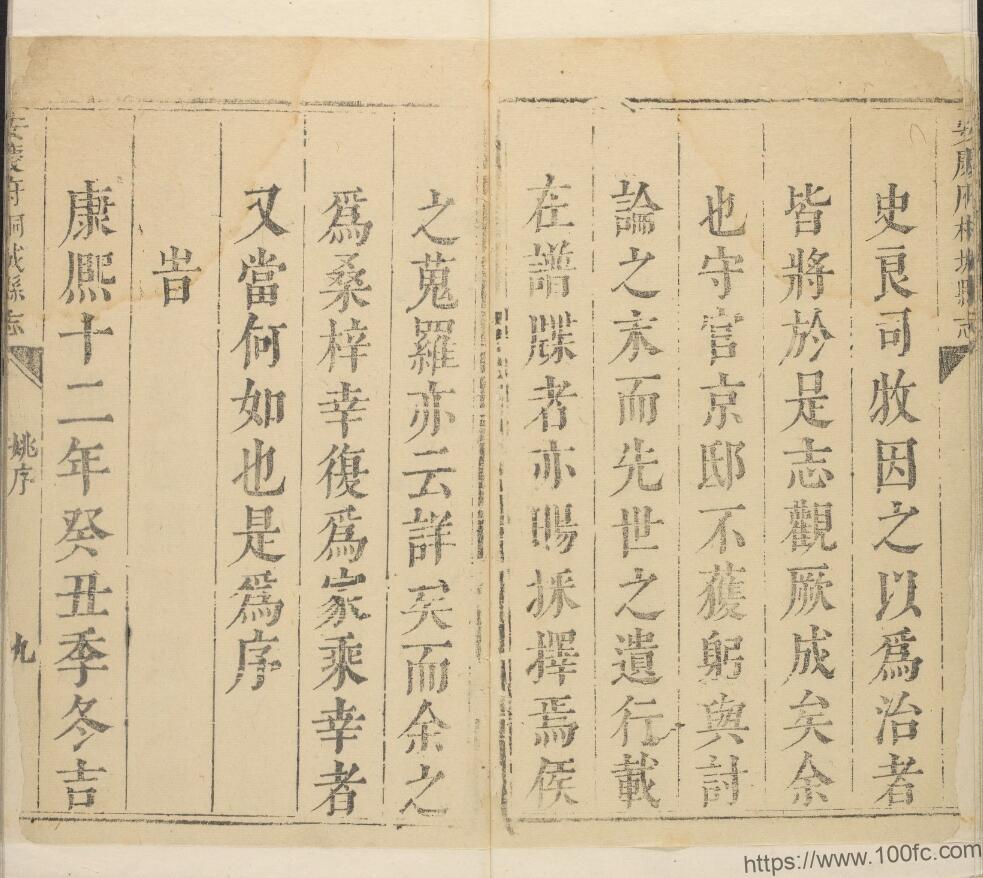 安慶府桐城縣志
史良司牧因之以爲治者
皆將於是志觀厥成矣余
也守官京邸不獲躬與討
論之末而先世之遺行載
在譜牒者亦賜採擇焉侯
之蒐羅亦云詳矣而余之
爲桑梓幸復爲家乘幸者
又當何如也是爲序
旹
康熙十二年癸丑季冬吉
安慶府桐城縣志
姚序
九
https://www.100fc.com